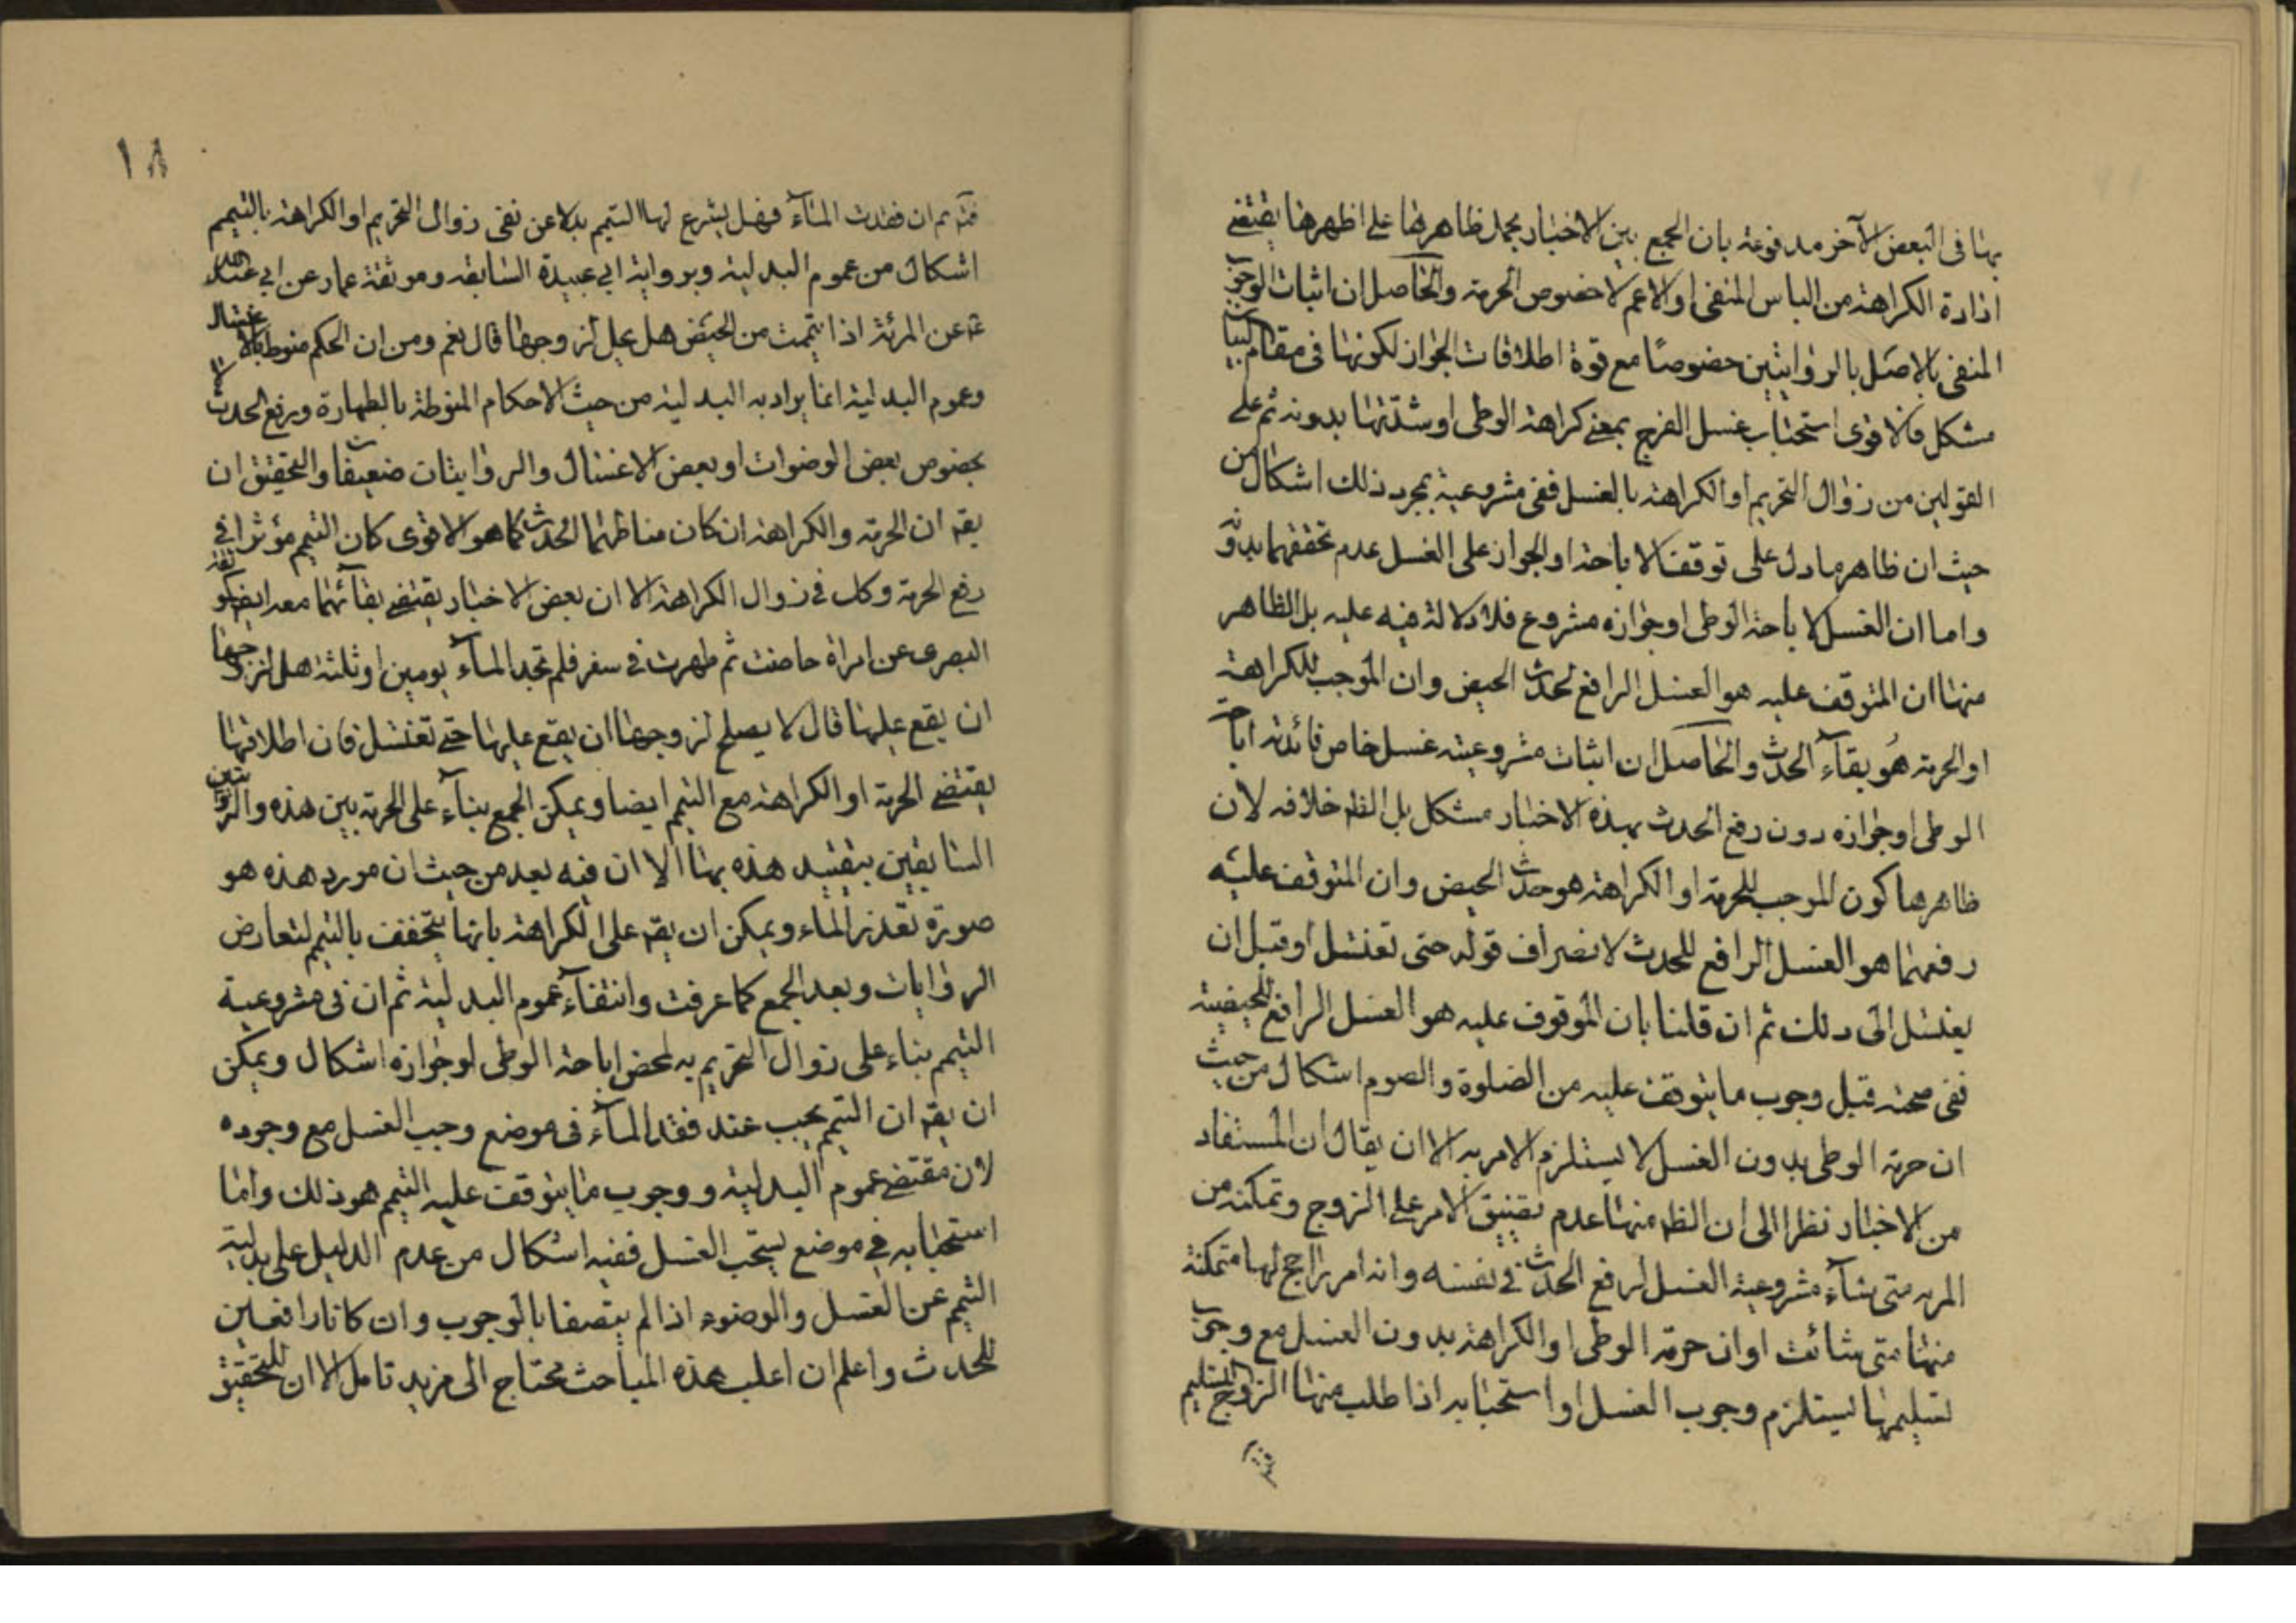 بها فى البعض الآخر مدفوعة بان الجمع بين الاخبار بحمل ظاهرها على اظهرها يقتضى
ارادة الكراهة من الباس المنفى او الاعم لا خصوص الحرمة والحاصل ان اثبات الوجوب
المنفى بالاصل بالروايتين خصوصًا مع قوة اطلاقات الجواز لكونها فى مقام البيان
مشكل فالاقوى استحباب غسل الفرج بمعنى كراهة الوطى او شدّتها بدونه ثم على
القولين من زوال التحريم او الكراهة بالغسل ففى مشروعية بمجرد ذلك اشكال من
حيث ان ظاهر ما دل على توقف الاباحة او الجواز على الغسل عدم تحققهما بدونه
واما ان الغسل لاباحة الوطى او جوازه مشروع فلا دلالة فيه عليه بل الظاهر
منها ان المتوقف عليه هو الغسل الرافع لحدث الحيض وان الموجب للكراهة
او الحرمة هو بقاء الحدث والحاصل ان اثبات مشروعية غسل خاص فائدته اباحة
الوطى او جوازه دون رفع الحدث بهذه الاخبار مشكل بل الظه خلافه لان
ظاهرها كون الموجب للحرمة او الكراهة هو حدث الحيض وان المتوقف عليه
رفعهما هو الغسل الرافع للحدث لانصراف قوله حتى تغتسل او قبل ان
يغتسل الى ذلك ثم ان قلنا بان الموقوف عليه هو الغسل الرافع للحيضية
ففى صحته قبل وجوب ما يتوقف عليه من الصلوة والصوم اشكال من حيث
ان حرمة الوطى بدون الغسل لا يستلزم الامر به الا ان يقال ان المستفاد
من الاخبار نظرا الى ان الظه منها عدم تضييق الامر على الزوج وتمكنه من
المرئه متى شاء مشروعية الغسل لرفع الحدث فى نفسه وانه امر راجح لها متمكنة
منها متى شائت او ان حرمة الوطى او الكراهة بدون الغسل مع وجوب
تسليمها يستلزم وجوب الغسل او استحبابه اذا طلب منها الزوج التسليم
١٨
ثم ان فقدت الماء فهل يشرع لها التيمم بدلا عن نفى زوال التحريم او الكراهة بالتيمم
اشكال من عموم البدلية وبرواية ابى عبيدة السابقه وموثقة عمار عن ابى عبد الله
ع عن المرئة اذا تيممت من الحيض هل يحل لزوجها قال نعم ومن ان الحكم منوط بالاغتسال
وعموم البدلية انما يراد به البدلية من حيث الاحكام المنوطة بالطهارة ورفع الحدث لا
بخصوص بعض الوضوات او بعض الاغتسال والروايات ضعيفة والتحقيق ان
يقه ان الحرمة والكراهة ان كان مناطهما الحدث كما هو الاقوى كان التيمم مؤثرا فى
رفع الحرمة وكك فى زوال الكراهة الا ان بعض الاخبار يقتضى بقائهما معه ايضا
البصرى عن امراة حاضت ثم طهرت فى سفر فلم تجد الماء يومين او ثلثة هل لزوجها
ان يقع عليها قال لا يصلح لزوجها ان يقع عليها حتى تغتسل فان اطلاقها
يقتضى الحرمة او الكراهة مع التيمم ايضا ويمكن الجمع بناء على الحرمة بين هذه والروايتين
السابقين بتقييد هذه بها الا ان فيه بعد من حيث ان مورد هذه هو
صورة تعذر الماء ويمكن ان يقه على الكراهة بانها يتخفف بالتيمم لتعارض
الروايات وبعد الجمع كما عرفت وانتفاء عموم البدلية ثم ان فى مشروعية
التيمم بناء على زوال التحريم به لمحض اباحة الوطى او جوازه اشكال ويمكن
ان يقه ان التيمم يجب عند فقد الماء فى موضع وجب الغسل مع وجوده
لان مقتضى عموم البدلية ووجوب ما يتوقف عليه التيمم هو ذلك واما
استحبابه فى موضع يستحب الغسل ففيه اشكال من عدم الدليل على بدلية
التيمم عن الغسل والوضوء اذا لم يتصفا بالوجوب وان كانا رافعين
للحدث واعلم ان اغلب هذه المباحث محتاج الى مزيد تامل الا ان للتحقيق